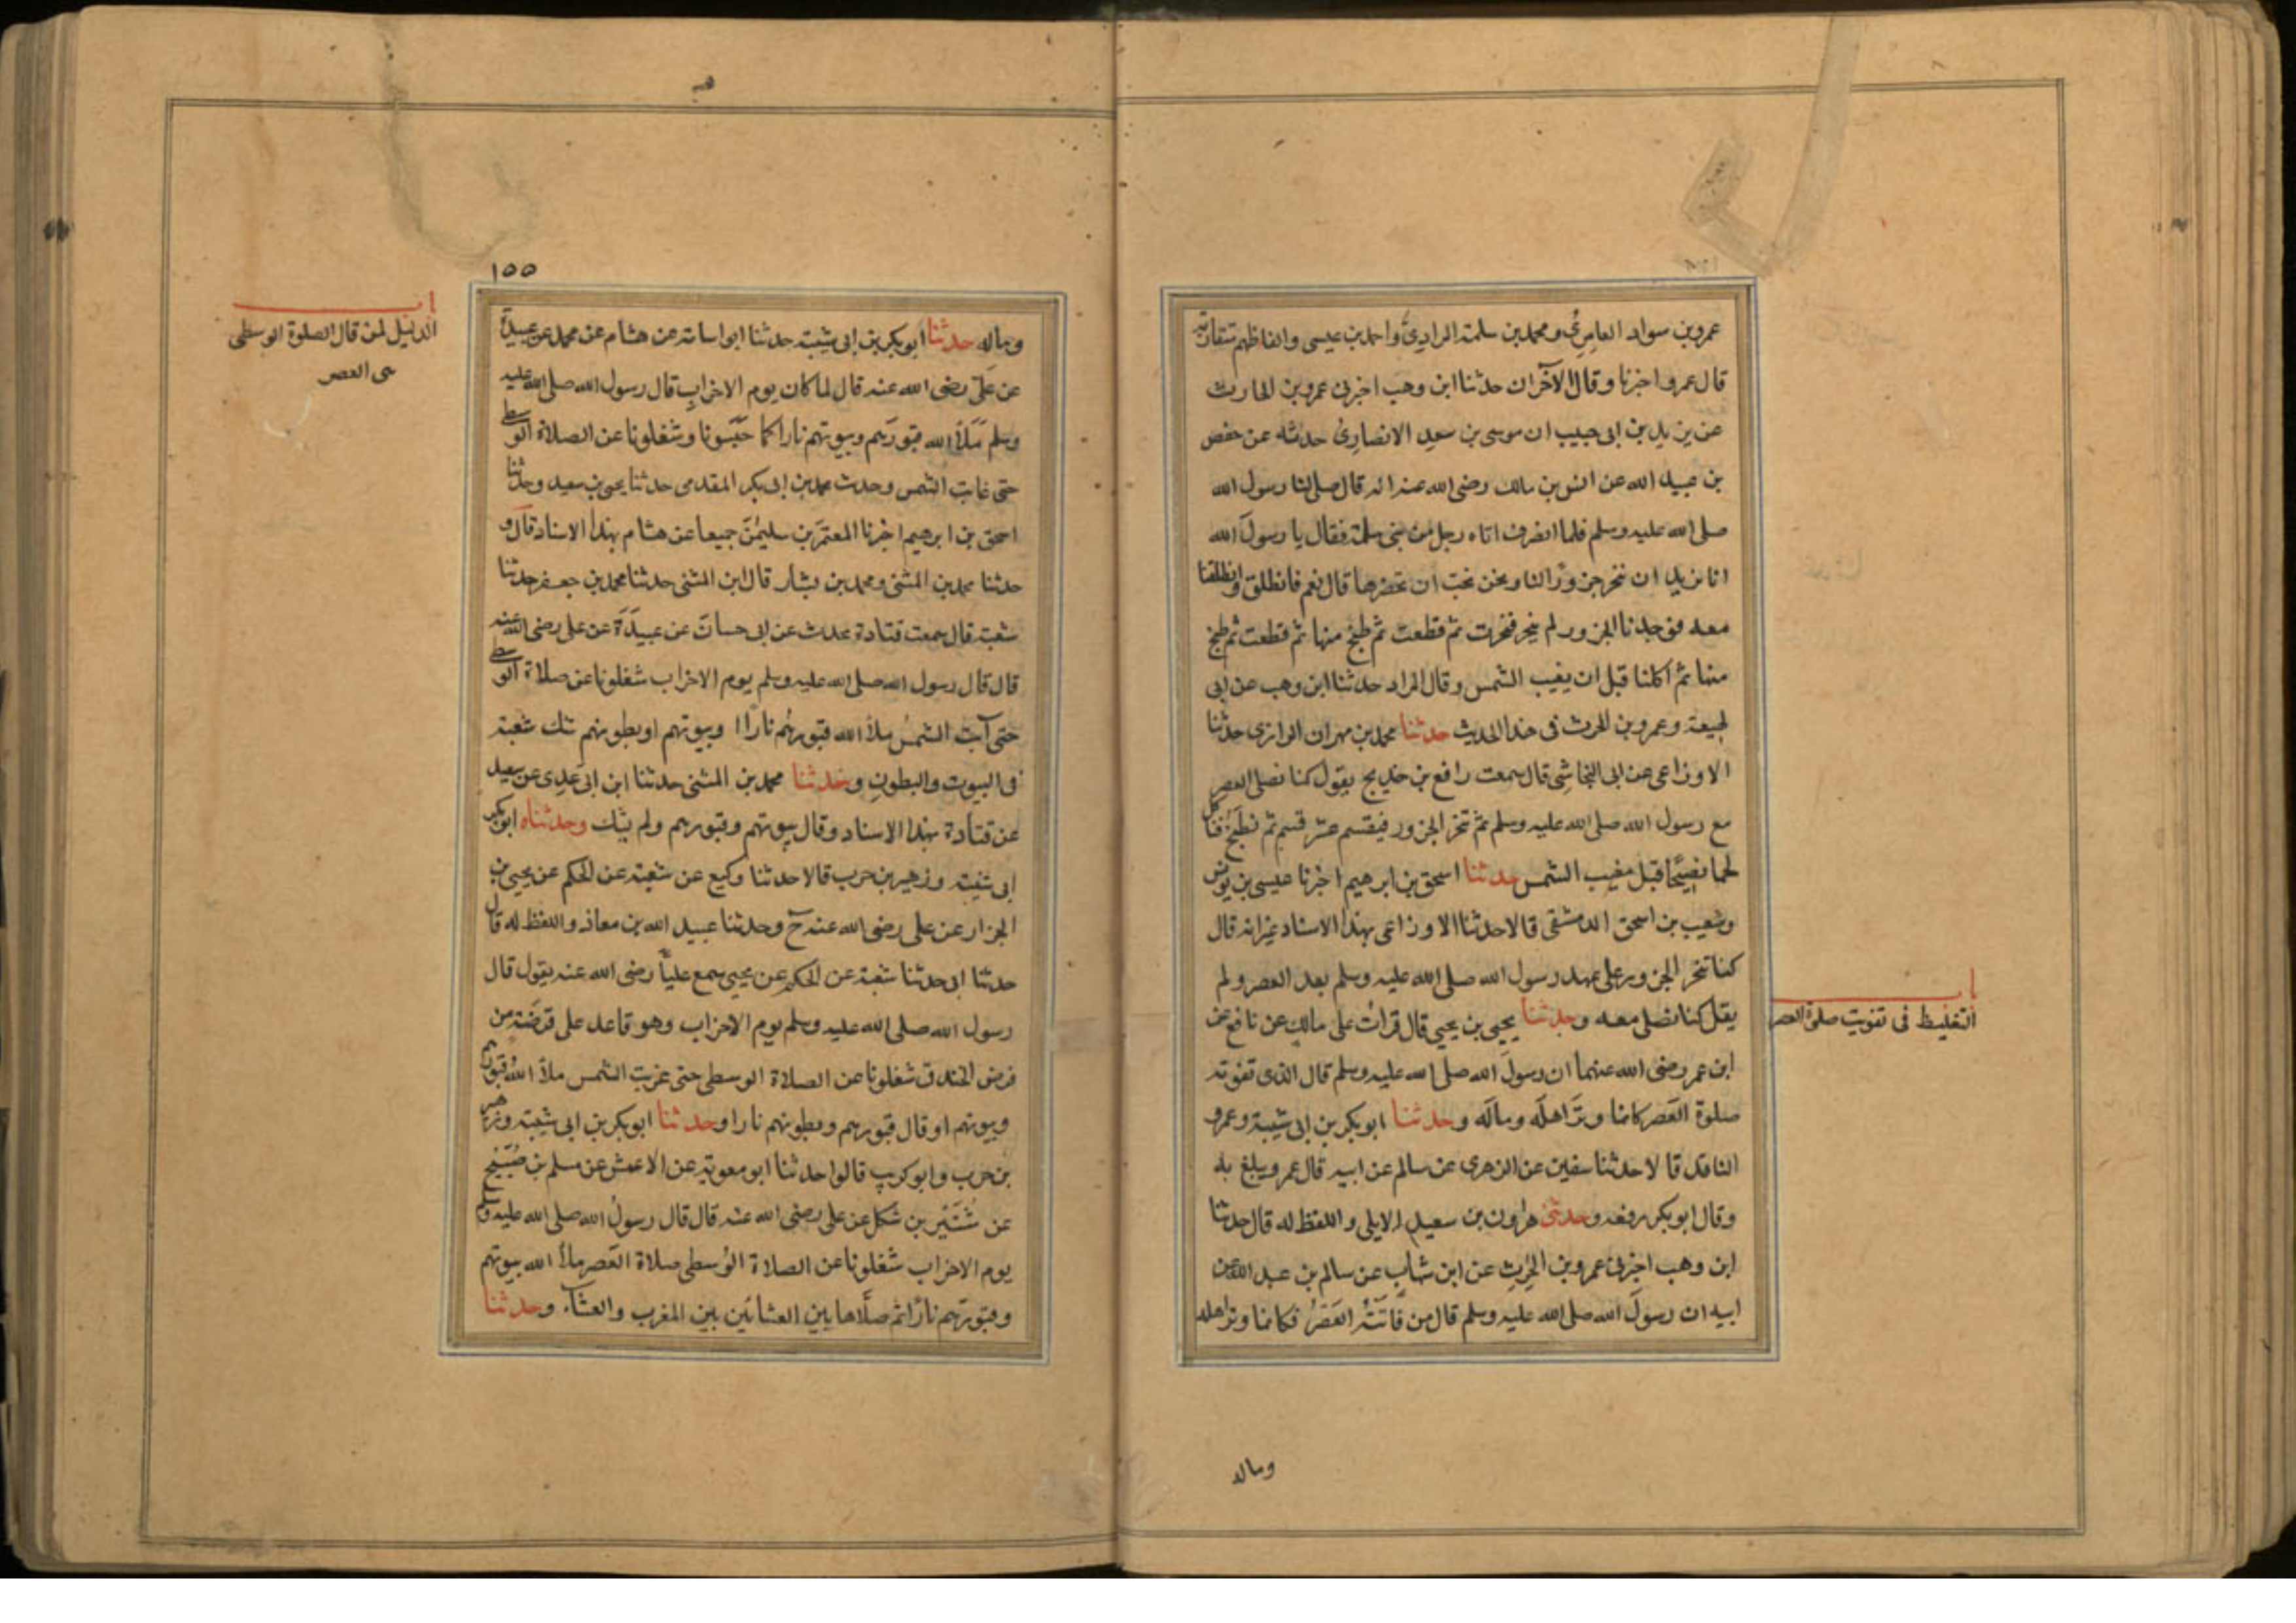 عمرو بن سواد العامري ومحمد بن سلمة المرادي واحمد بن عيسى والفاظهم متقاربة
قال عمرو اخبرنا وقال الآخران حدثنا ابن وهب اخبرني عمرو بن الحارث
عن يزيد بن ابى حبيب ان موسى بن سعيد الانصاري حدثه عن حفص
بن عبيد الله عن انس بن مالك رضى الله عنه انه قال صلى لنا رسول الله
صلى الله عليه وسلم فلما انصرف اتاه رجل من بنى سلمة فقال يا رسول الله
انا نريد ان ننحر جزورا لنا ونحن نحب ان تحضرها قال نعم فانطلق وانطلقنا
معه فوجدنا الجزور لم ينحر فنحرت ثم قطعت ثم طبخ منها ثم قطعت ثم طبخ
منها ثم اكلنا قبل ان يغيب الشمس وقال المراد حدثنا ابن وهب عن ابى
لهيعة وعمرو بن الحرث فى هذا الحديث حدثنا محمد بن مهران الرازى حدثنا
الاوزاعى عن ابى النجاشى قال سمعت رافع بن خديج يقول كنا نصلى العصر
مع رسول الله صلى الله عليه وسلم ثم تنحر الجزور فيقسم عشر قسم ثم نطبخ فناكل
لحما نضيجا قبل مغيب الشمس حدثنا اسحق بن ابرهيم اخبرنا عيسى بن يونس
وشعيب بن اسحق الدمشقى قالا حدثنا الاوزاعى بهذا الاسناد غير انه قال
كنا ننحر الجزور على عهد رسول الله صلى الله عليه وسلم بعد العصر ولم
يقل كنا نصلى معه وحدثنا يحيى بن يحيى قال قرات على مالك عن نافع عن
باب
التغليظ فى تفويت صلوة العصر
ابن عمر رضى الله عنهما ان رسول الله صلى الله عليه وسلم قال الذى تفوته
صلوة العصر كانما وتر اهله وماله وحدثنا ابو بكر بن ابى شيبة وعمرو
الناقد قالا حدثنا سفين عن الزهرى عن سالم عن ابيه قال عمرو يبلغ به
وقال ابو بكر رفعه وحدثنى هارون بن سعيد الايلى واللفظ له قال حدثنا
ابن وهب اخبرنى عمرو بن الحرث عن ابن شهاب عن سالم بن عبد الله عن
ابيه ان رسول الله صلى الله عليه وسلم قال من فاتته العصر فكانما وتر اهله
وماله
١٥٥
باب
الدليل لمن قال الصلوة الوسطى
هى العصر
وماله حدثنا ابو بكر بن ابى شيبة حدثنا ابو اسامة عن هشام عن محمد عن عبيدة
عن على رضى الله عنه قال لما كان يوم الاحزاب قال رسول الله صلى الله عليه
وسلم ملا الله قبورهم وبيوتهم نارا كما حبسونا وشغلونا عن الصلاة الوسطى
حتى غابت الشمس وحدث محمد بن ابى بكر المقدمى حدثنا يحيى بن سعيد وحدثنا
اسحق بن ابرهيم اخبرنا المعتمر بن سليمن جميعا عن هشام بهذا الاسناد قال و
حدثنا محمد بن المثنى ومحمد بن بشار قال ابن المثنى حدثنا محمد بن جعفر حدثنا
شعبة قال سمعت قتادة يحدث عن ابى حسان عن عبيدة عن على رضى الله عنه
قال قال رسول الله صلى الله عليه وسلم يوم الاحزاب شغلونا عن صلاة الوسطى
حتى آبت الشمس ملا الله قبورهم نارا او بيوتهم او بطونهم شك شعبة
فى البيوت والبطون وحدثنا محمد بن المثنى حدثنا ابن ابى عدى عن سعيد
عن قتادة بهذا الاسناد وقال بيوتهم وقبورهم ولم يشك وحدثناه ابو بكر
ابى شيبة وزهير بن حرب قالا حدثنا وكيع عن شعبة عن الحكم عن يحيى بن
الجزار عن على رضى الله عنه ح وحدثنا عبيد الله بن معاذ واللفظ له قال
حدثنا ابى حدثنا شعبة عن الحكم عن يحيى سمع عليا رضى الله عنه يقول قال
رسول الله صلى الله عليه وسلم يوم الاحزاب وهو قاعد على فرضة من
فرض الخندق شغلونا عن الصلاة الوسطى حتى غربت الشمس ملا الله قبورهم
وبيوتهم او قال قبورهم وبطونهم نارا وحدثنا ابو بكر بن ابى شيبة وزهير
بن حرب وابو كريب قالوا حدثنا ابو معوية عن الاعمش عن مسلم بن صبيح
عن شتير بن شكل عن على رضى الله عنه قال قال رسول الله صلى الله عليه وسلم
يوم الاحزاب شغلونا عن الصلاة الوسطى صلاة العصر ملا الله بيوتهم
وقبورهم نارا ثم صلاها بين العشائين بين المغرب والعشاء وحدثنا